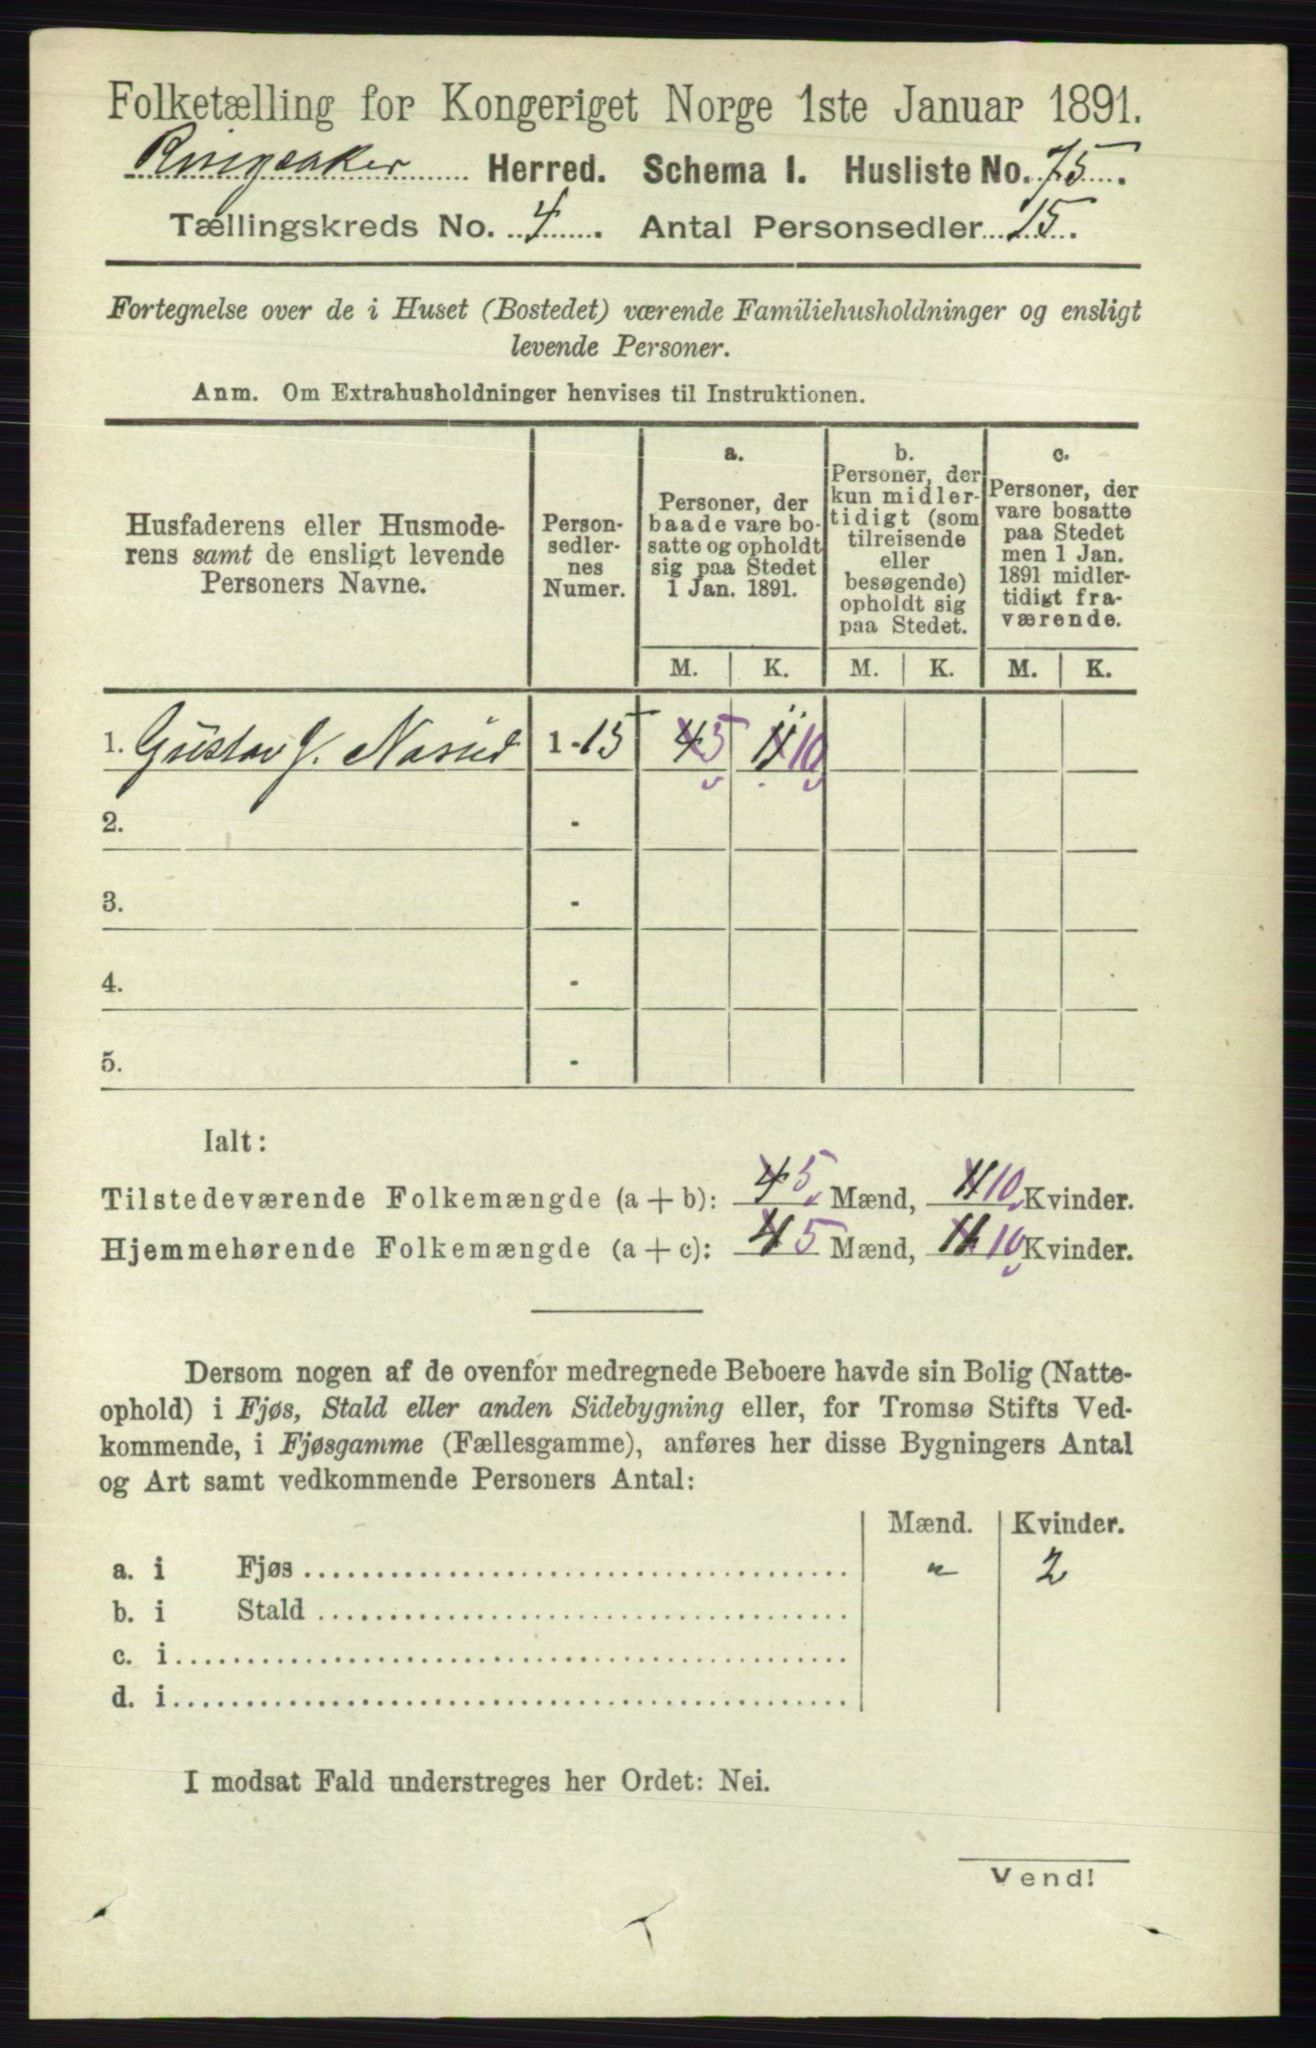 Folketælling for Kongeriget Norge 1ste Januar 1891.
Ringsaker Herred. Schema I. Husliste No. 75.
Tællingskreds No. 4. Antal Personsedler 15.
Fortegnelse over de i Huset (Bostedet) værende Familiehusholdninger og ensligt
levende Personer.
Anm. Om Extrahusholdninger henvises til Instruktionen.
Husfaderens eller Husmode-
rens samt de ensligt levende
Personers Navne.
Person-
sedler-
nes
Numer.
a.
Personer, der
baade vare bo-
satte og opholdt
sig paa Stedet
1 Jan. 1891.
b.
Personer, der
kun midler-
tidigt (som
tilreisende
eller
besøgende)
opholdt sig
paa Stedet.
c.
Personer, der
vare bosatte
paa Stedet
men 1 Jan.
1891 midler-
tidigt fra-
værende.
M. K. M. K. M. K.
1. Gustav J. 1-15 4 5 11 10
2. -
3. -
4. -
5. -
Ialt:
Tilstedeværende Folkemængde (a + b): 4 5 Mænd, 11 10 Kvinder.
Hjemmehørende Folkemængde (a + c): 4 5 Mænd, 11 10 Kvinder.
Dersom nogen af de ovenfor medregnede Beboere havde sin Bolig (Natte-
ophold) i Fjøs, Stald eller anden Sidebygning eller, for Tromsø Stifts Ved-
kommende, i Fjøsgamme (Fællesgamme), anføres her disse Bygningers Antal
og Art samt vedkommende Personers Antal:
Mænd. Kvinder.
a. i Fjøs „ 2
b. i Stald
c. i
d. i
I modsat Fald understreges her Ordet: Nei.
Vend!